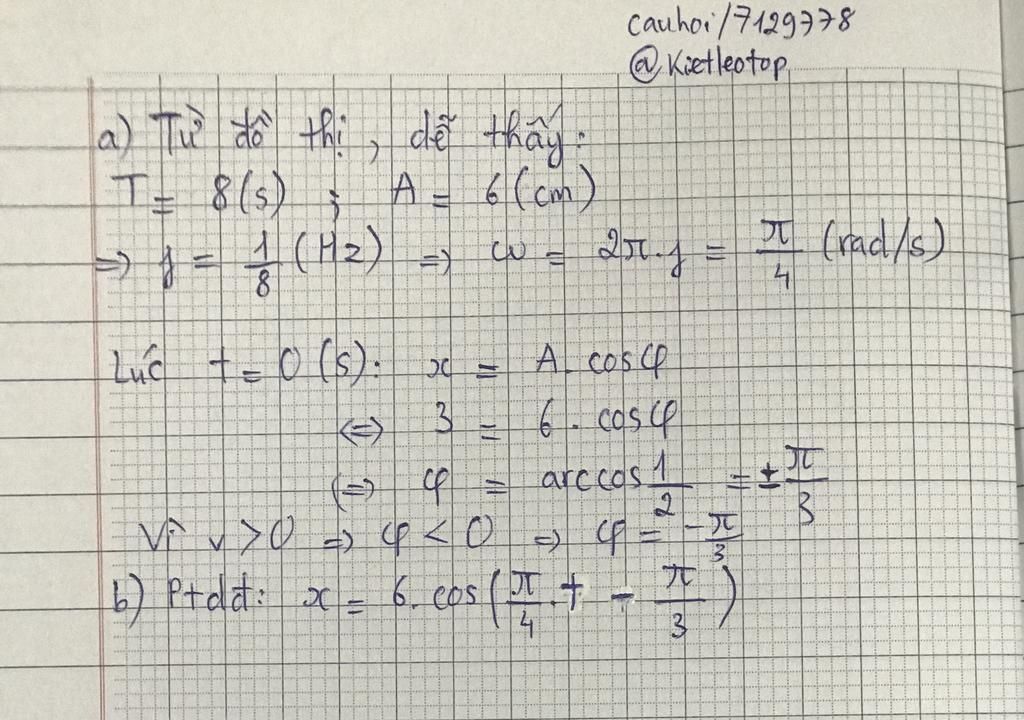 cauhoi/7129778
@Kietleotop
a) Từ đồ thị, dễ thấy:
T = 8(s) ; A = 6(cm)
=> f = 1/8 (Hz) => ω = 2π.f = π/4 (rad/s)
Lúc t = 0(s): x = A. cosφ
<=> 3 = 6. cosφ
<=> φ = arccos 1/2 = ± π/3
Vì v > 0 => φ < 0 => φ = -π/3
b) Ptdđ: x = 6. cos(π/4 . t - π/3)